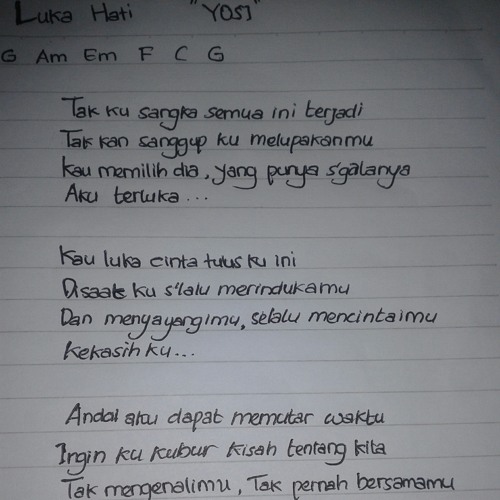 Luka Hati "YOSI"
G Am Em F C G
Tak ku sangka semua ini terjadi
Tak kan sanggup ku melupakanmu
Kau memilih dia, yang punya s'galanya
Aku terluka...
Kau luka cinta tulus ku ini
Disaat ku s'lalu merindukamu
Dan menyayangimu, selalu mencintaimu
Kekasih ku...
Andai aku dapat memutar waktu
Ingin ku kubur kisah tentang kita
Tak mengenalimu, Tak pernah bersamamu